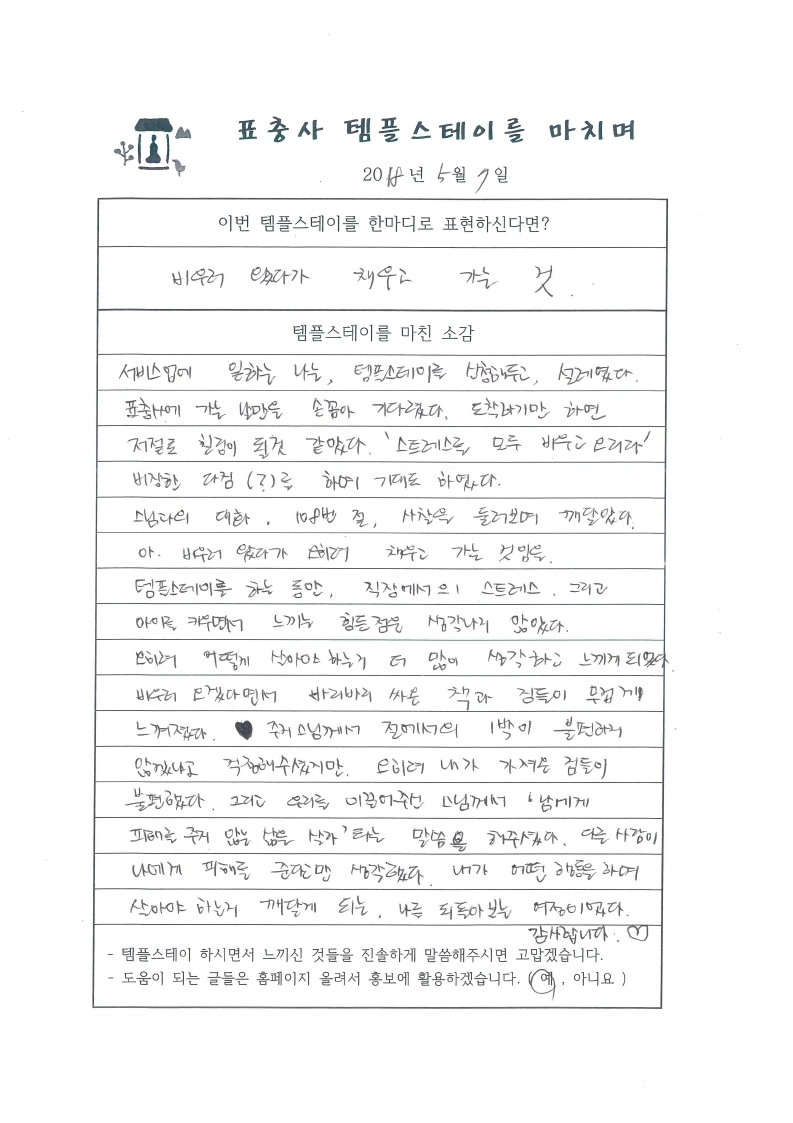 표충사 템플스테이를 마치며
2018년 5월 7일
이번 템플스테이를 한마디로 표현하신다면?
비우러 왔다가 채우고 가는 것.
템플스테이를 마친 소감
서비스업에 일하는 나는, 템플스테이를 신청해두고, 설레였다.
표충사에 가는 날만을 손꼽아 기다렸다. 도착하기만 하면
저절로 힐링이 될것 같았다. '스트레스를 모두 비우고 오리라'
비장한 다짐(?)을 하며 기대도 하였다.
스님과의 대화, 108번 절, 사찰을 둘러보며 깨달았다.
아. 비우러 왔다가 오히려 채우고 가는 것임을.
템플스테이를 하는 동안, 직장에서의 스트레스, 그리고
아이를 키우면서 느끼는 힘든점은 생각나지 않았다.
오히려 어떻게 살아야 하는지 더 많이 생각하고 느끼게 되었다
비우러 오겠다면서 바리바리 싸온 책과 짐들이 무겁게
느껴졌다. ♥ 주지스님께서 절에서의 1박이 불편하지
않겠냐고 걱정해주셨지만, 오히려 내가 가져온 짐들이
불편했다. 그리고 우리를 이끌어주신 스님께서 '남에게
피해를 주지 않는 삶을 살자'라는 말씀을 해주셨다. 다른 사람이
나에게 피해를 준다고만 생각했다. 내가 어떤 행동을 하며
살아야 하는지 깨닫게 되는, 나를 되돌아보는 여정이었다.
감사합니다. ♡
- 템플스테이 하시면서 느끼신 것들을 진솔하게 말씀해주시면 고맙겠습니다.
- 도움이 되는 글들은 홈페이지 올려서 홍보에 활용하겠습니다. ( 예 , 아니요 )